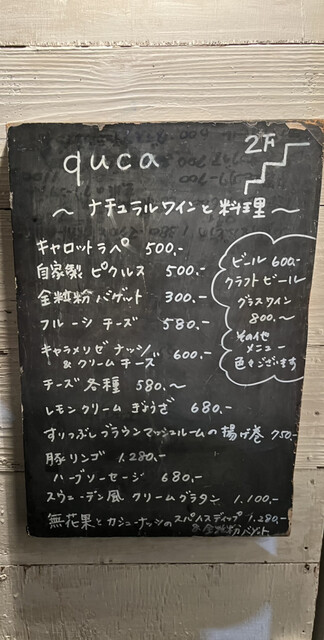 quca
2F
～ナチュラルワインと料理～
キャロットラペ 500.-
自家製ピクルス 500.-
全粒粉バゲット 300.-
フルーツチーズ 580.-
キャラメリゼナッツ
&クリームチーズ 600.-
チーズ各種 580.～
レモンクリームぎょうざ 680.-
すりつぶしブラウンマッシュルームの揚げ巻 750.-
豚リンゴ 1.280.-
ハーブソーセージ 680.-
スウェーデン風クリームグラタン 1.100.-
無花果とカシューナッツのスパイスディップ 1.280.-
全粒粉バゲット
ビール 600.-
クラフトビール
グラスワイン
800.～
その他
メニュー
色々ございます